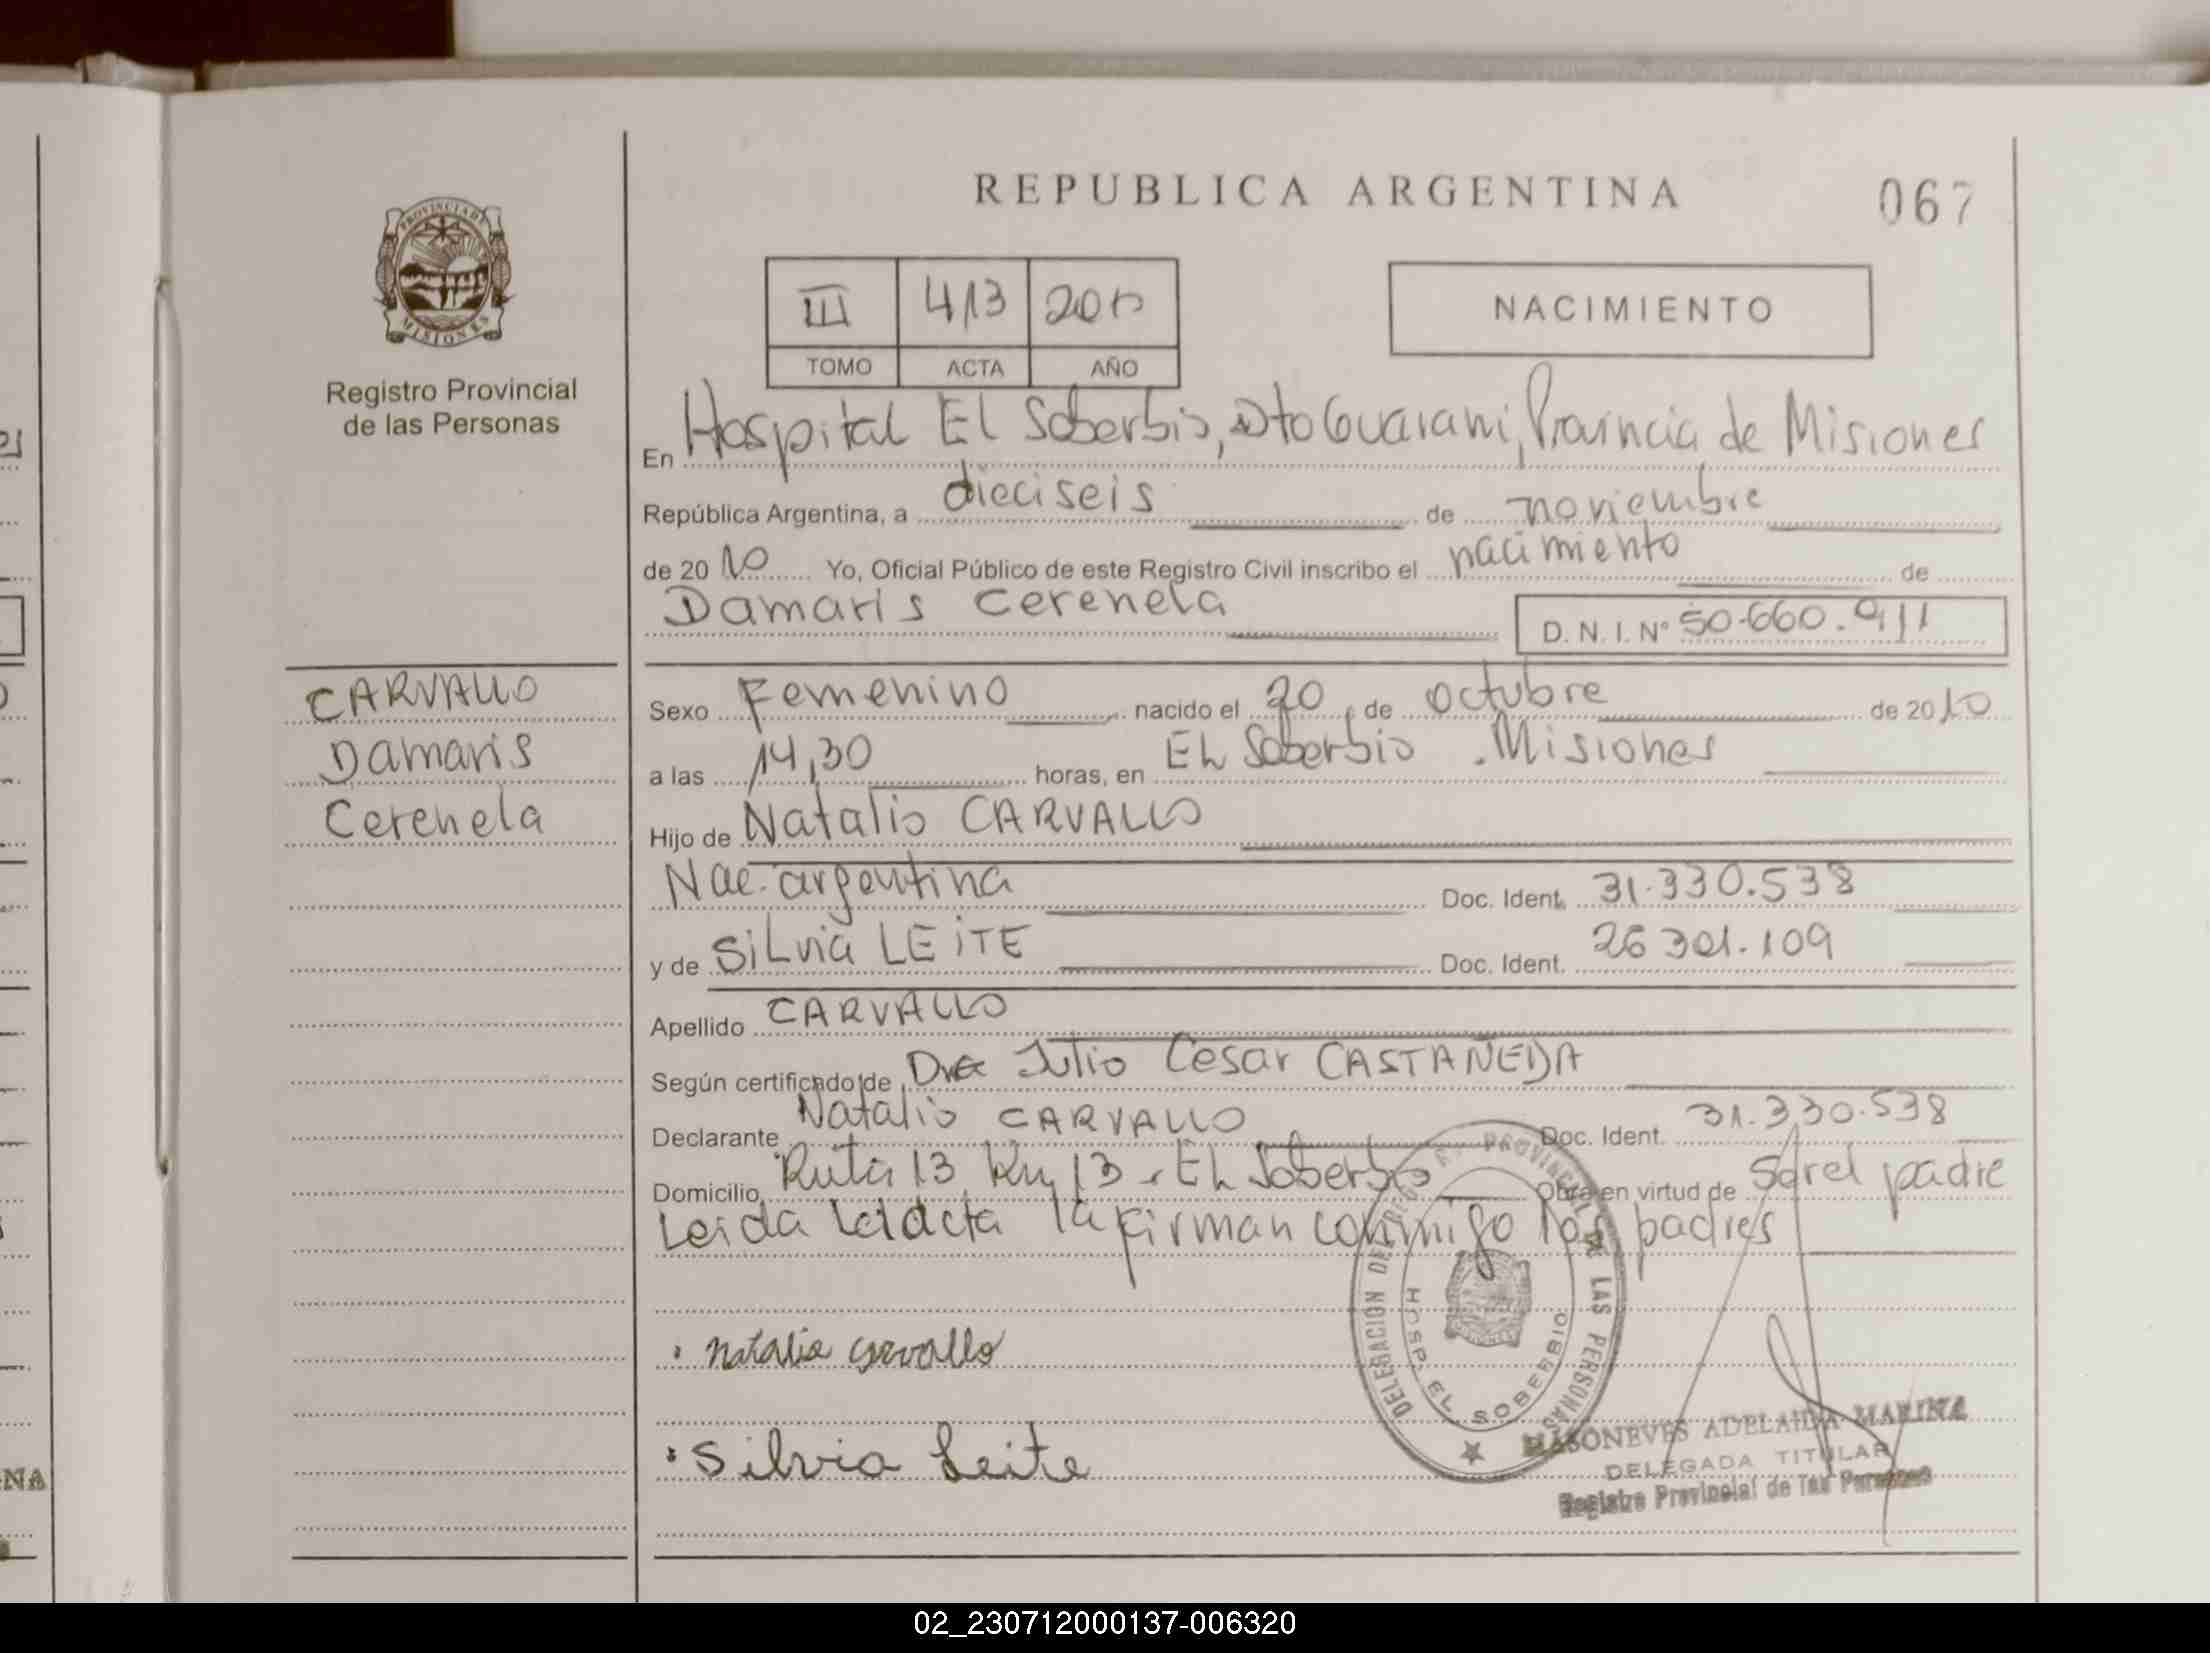 REPUBLICA ARGENTINA
067
PROVINCIA DE
MISIONES
Registro Provincial
de las Personas
III 413 2010
TOMO ACTA AÑO
NACIMIENTO
En Hospital El Soberbio, Dto Guarani, Provincia de Misiones
República Argentina, a dieciseis de noviembre
de 2010 Yo, Oficial Público de este Registro Civil inscribo el nacimiento de
Damaris Cerenela D. N. I. Nº 50.660.911
CARVALLO
Damaris
Cerenela
Sexo Femenino nacido el 20 de octubre de 2010
a las 14,30 horas, en El Soberbio . Misiones
Hijo de Natalio CARVALLO
Nac. argentina Doc. Ident. 31.330.538
y de Silvia LEITE Doc. Ident. 26 301.109
Apellido CARVALLO
Según certificado de Julio Cesar CASTAÑEDA
Declarante Natalio CARVALLO Doc. Ident. 31.330.538
Domicilio Ruta 13 Km 13 - El Soberbio Obra en virtud de ser el padre
Leida el acta la firman conmigo los padres
DELEGACION DEL REG. PROVINCIAL DE LAS PERSONAS
HOSP. EL SOBERBIO
Natalio Carvallo
Silvia Leite
MASONEVES ADELAIDA MARINA
DELEGADA TITULAR
Registro Provincial de las Personas
NA
02_230712000137-006320